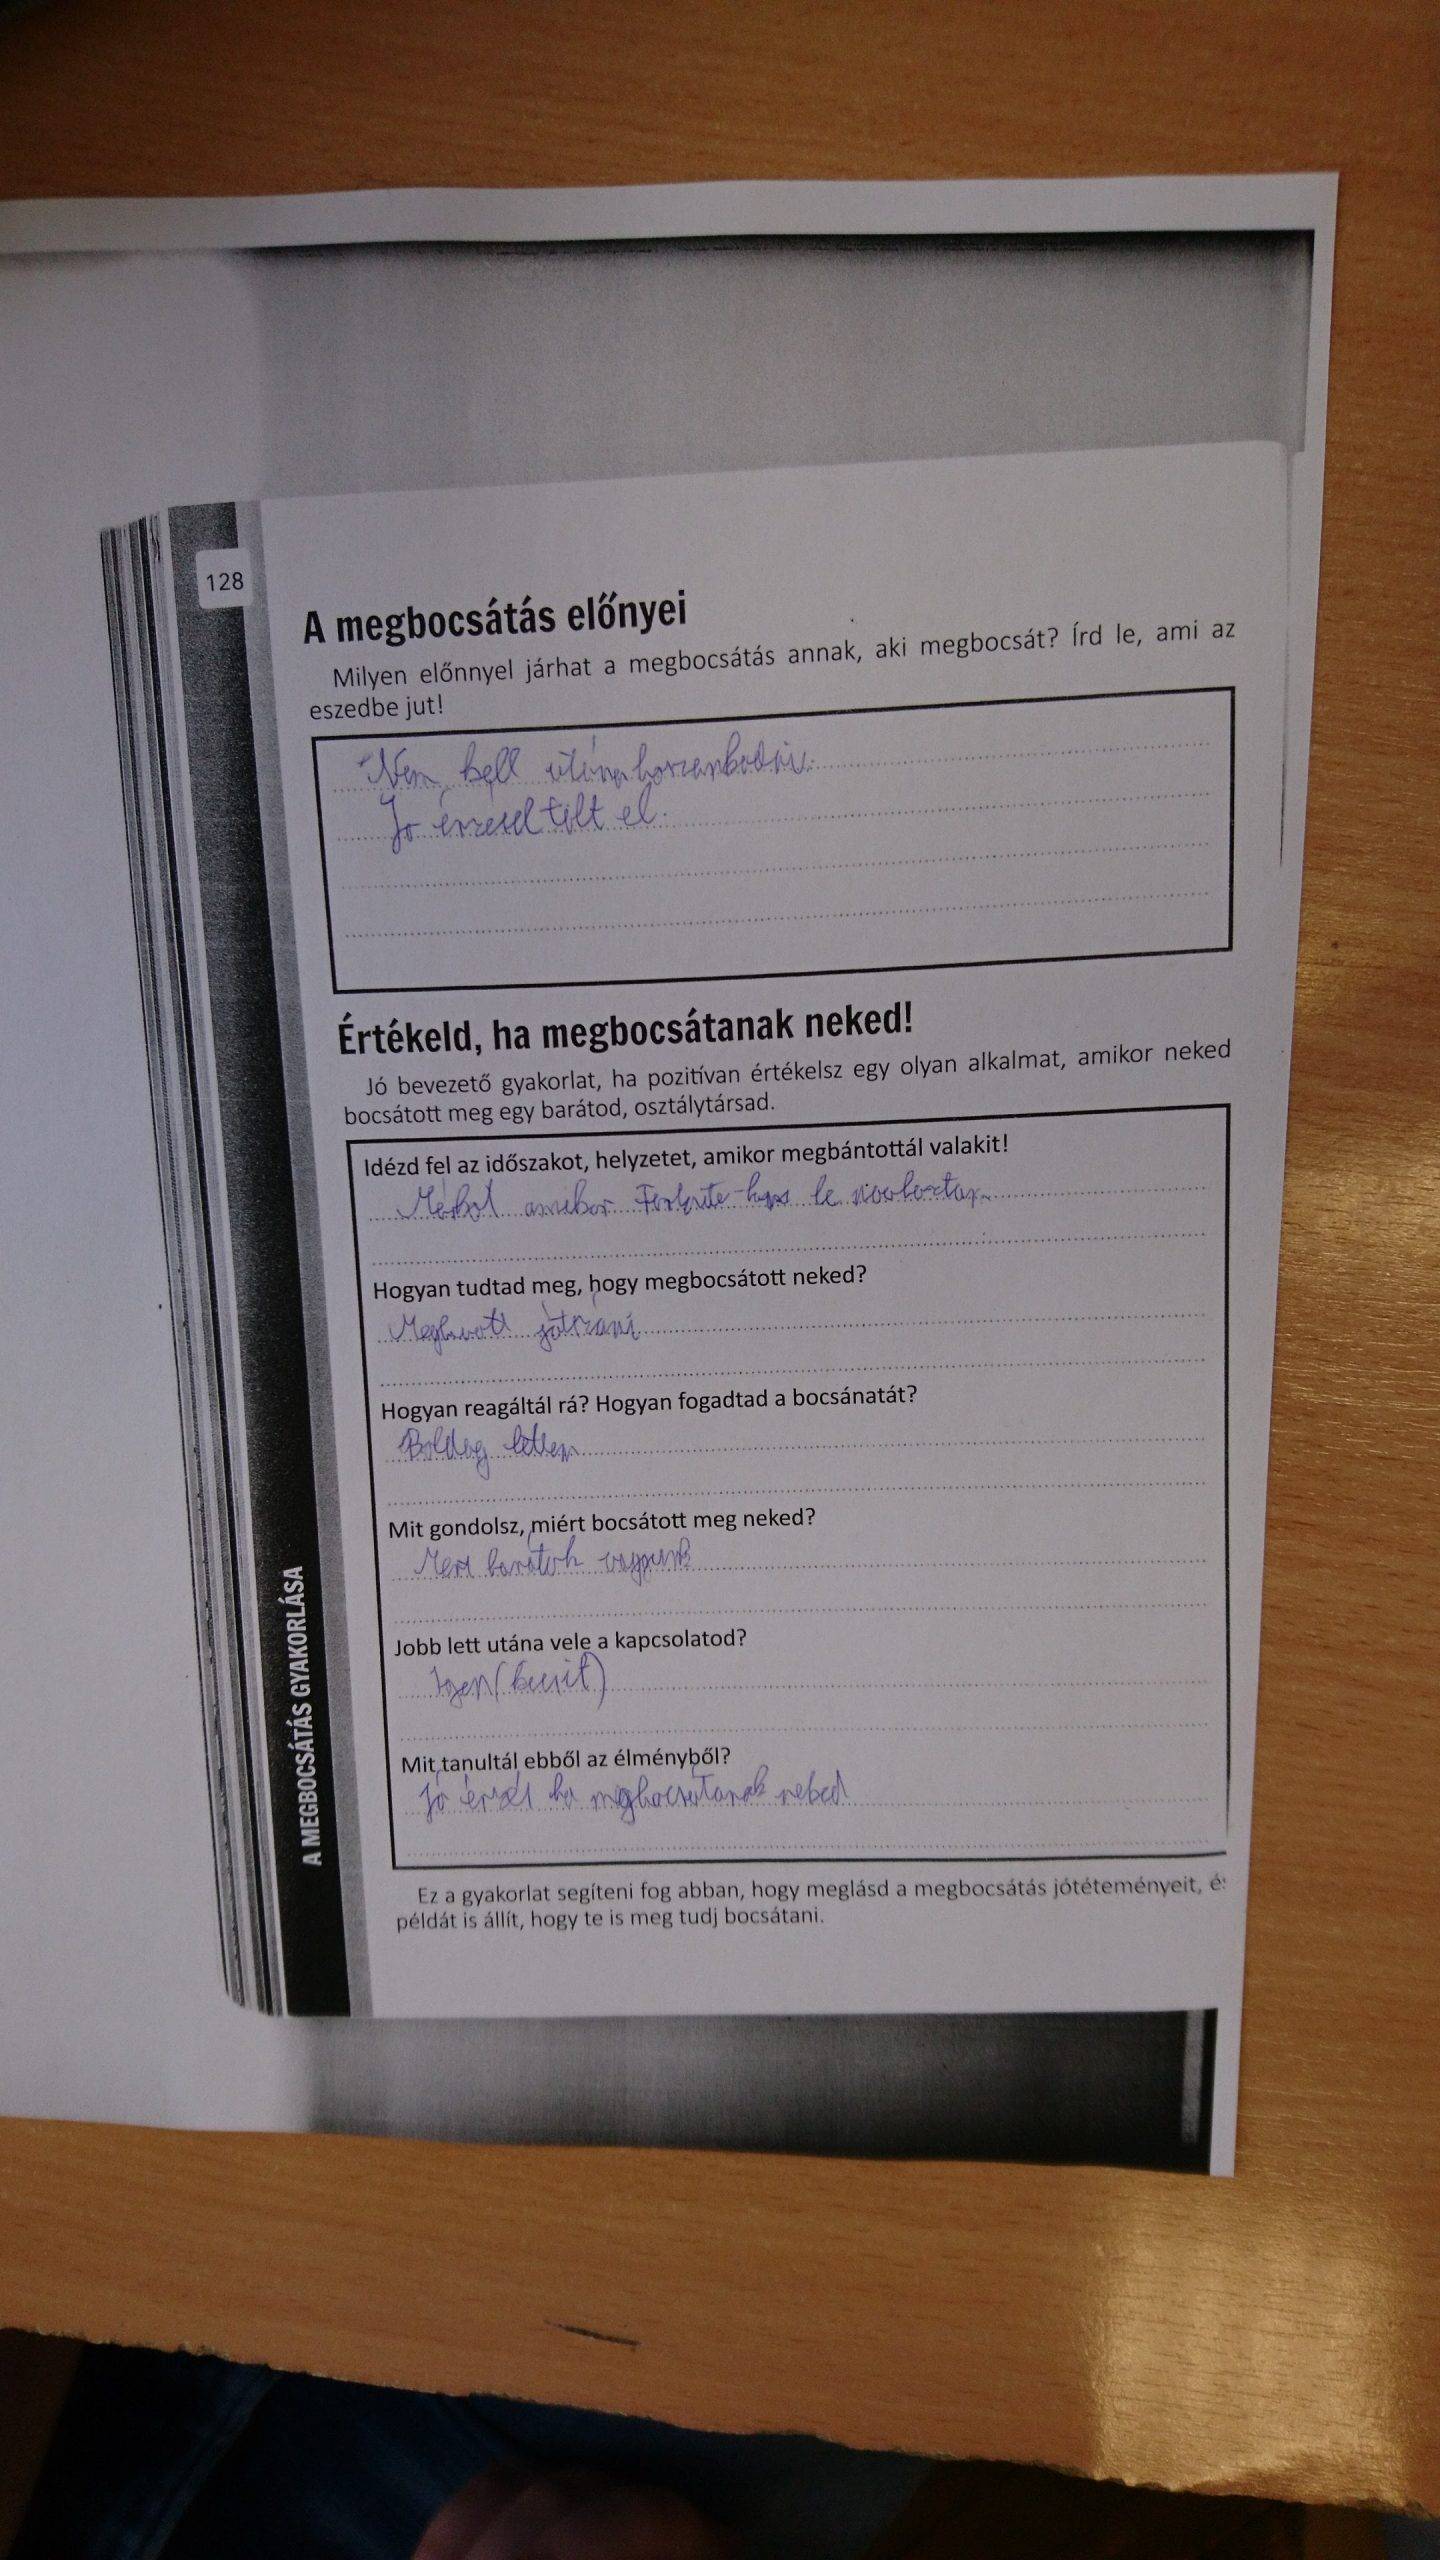 128
A megbocsátás előnyei
Milyen előnnyel járhat a megbocsátás annak, aki megbocsát? Írd le, ami az
eszedbe jut!
Nem kell utána
Jó érzésel tölt el.
Értékeld, ha megbocsátanak neked!
Jó bevezető gyakorlat, ha pozitívan értékelsz egy olyan alkalmat, amikor neked
bocsátott meg egy barátod, osztálytársad.
Idézd fel az időszakot, helyzetet, amikor megbántottál valakit!
amikor le
Hogyan tudtad meg, hogy megbocsátott neked?
Meghívott játszani
Hogyan reagáltál rá? Hogyan fogadtad a bocsánatát?
Boldog lettem
Mit gondolsz, miért bocsátott meg neked?
Mert barátok vagyunk
Jobb lett utána vele a kapcsolatod?
Igen (kicsit)
Mit tanultál ebből az élményből?
Jó érzés ha megbocsátanak neked
Ez a gyakorlat segíteni fog abban, hogy meglásd a megbocsátás jótéteményeit,
példát is állít, hogy te is meg tudj bocsátani.
A MEGBOCSÁTÁS GYAKORLÁSA